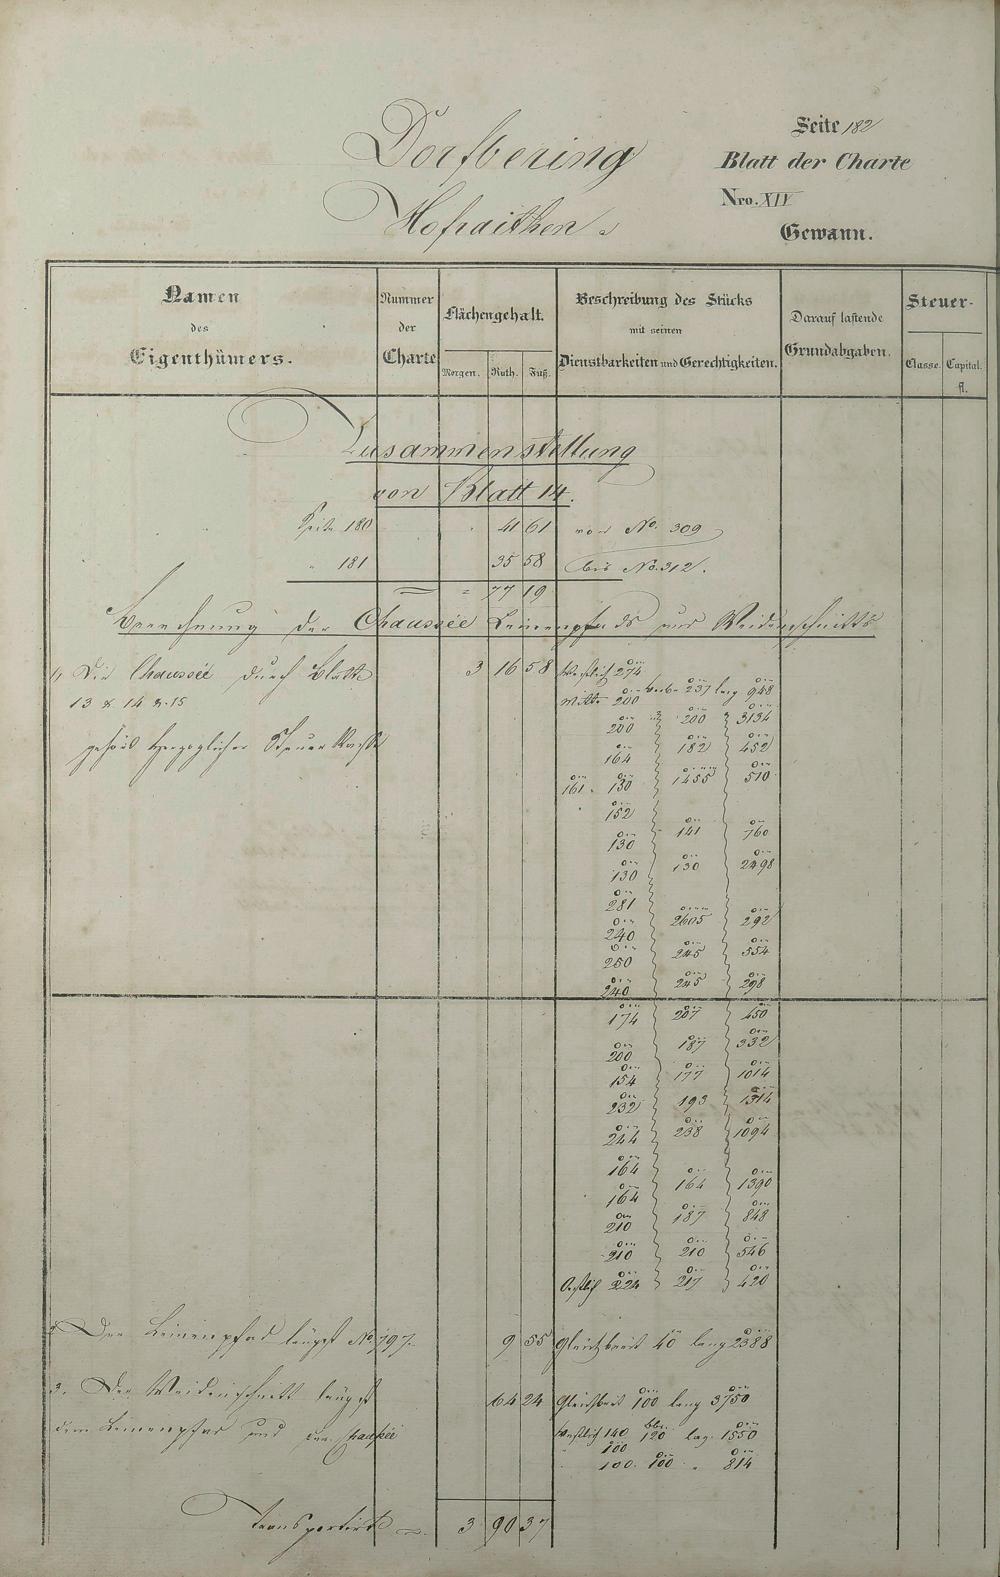 Dorfbering
Hofraithen.
Seite 182
Blatt der Charte
Nro. XIV
Gewann.
Namen
des
Eigenthümers.
Nummer
der
Charte
Flächengehalt.
Morgen. Ruth. Fuß.
Beschreibung des Stücks
mit seinen
Dienstbarkeiten und Gerechtigkeiten.
Darauf lastende
Grundabgaben.
Steuer-
Classe. Capital.
fl.
Zusammenstellung
von Blatt 14.
Seite 180 41 61 von No. 309
" 181 35 58 bis No. 312.
= 77 19
Berechnung der Chaussée Leinenpfads und Weidenschnitts
1, Die Chaussée durch Blatt 3 16 58 Westlich 274
13 & 14 & 15 Mitte 200 breit 237 lang 948
200 200 3134
gehört Herzoglicher Steuer Kasse
164 182 452
161. 130 1455 510
152
130 141 760
130 130 2498
281
240 2605 292
250 245 554
240 245 298
174 207 450
200 187 332
154 177 1014
232 193 1314
244 238 1094
164
164 164 1390
210 187 848
210 210 546
Oestlich 224 217 420
2 Der Leinenpfad längst No. 197. 9 55 Gleichbreit 40 lang 2388
3. Der Weidenschnitt längst 64 24 Gleichbreit 100 lang 3750
dem Leinenpfad und der Chaussée Westlich 140 120 lag. 1550
100
100. 100 " 814
Transportirt 3 90 37